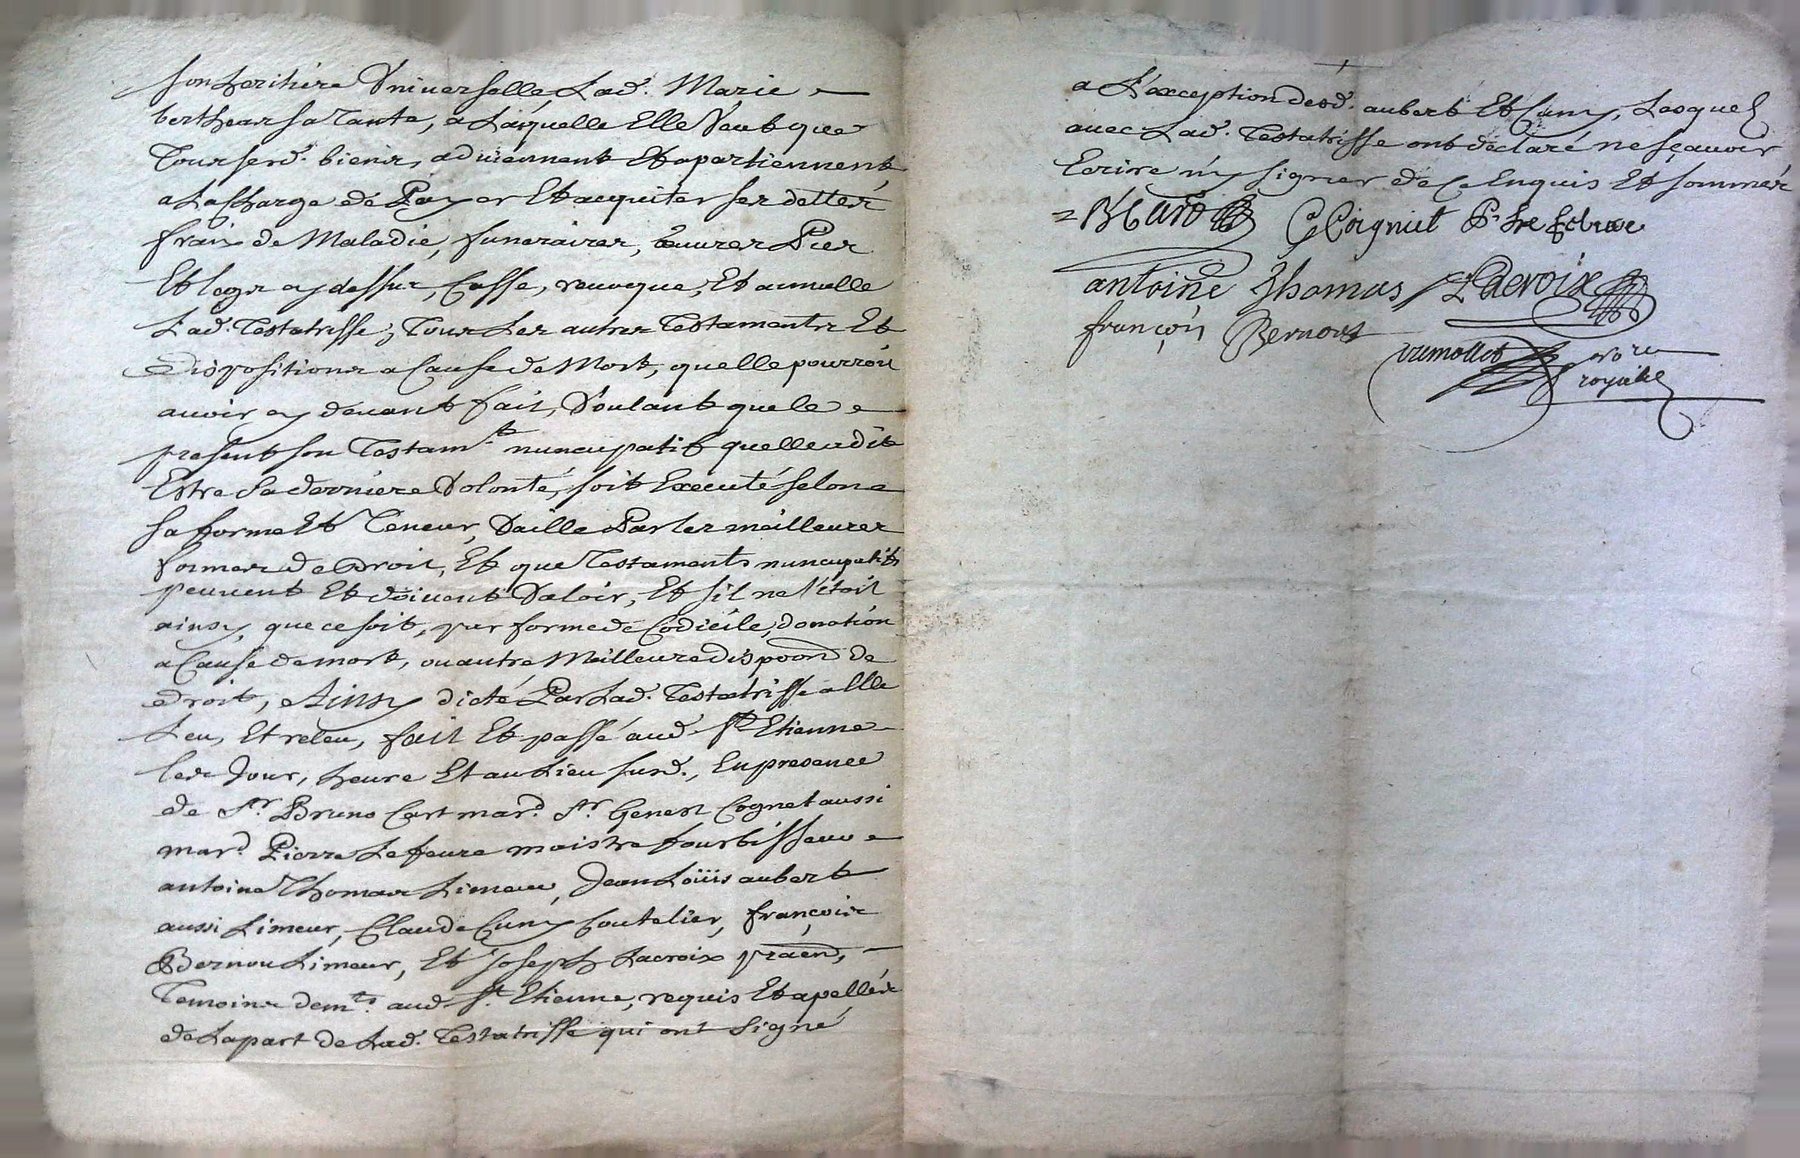 son heritiére Vniverselle Lad. Marie
berthear sa Tante, a Laquelle Elle Veut que
Tous sesd. biens, adviennent Et apartiennent
a La Charge de Payer Et acquiter ses dettes
frais de Maladie, funeraires, œuures Pies
Et legs cy dessus, Casse, reuoque, Et annulle
Lad. Testatrisse, Tous Les autres Testaments Et
Dispositions a Cause de Mort, quelle pourroit
auoir cy deuant fait, Voulant que le
present son Testamt nuncupatif quelle a dit
Estre Sa derniere Volonté, soit Executé selon
sa forme Et Teneur, Vaille Par les meilleures
formes de Droit, Et que Testaments nuncupatifs
peuuent Et doiuent Valoir, Et sil ne l'étoit
ainsy, que ce soit, par forme de Codicile, donation
a Cause de mort, ou autre Meilleure dispoon de
Droit, Ainsy dicté Par Lad. Testatrisse a Elle
Leu, Et releu, fait Et passé aud. St Etienne
les Jour, heure Et au Lieu susd., En presence
de Sr. Bruno Cart mard. Sr. Genest Cognet aussi
mard. Pierre Lefeure maistre fourbisseur
antoine Thomas Limeur, Jean Loüis aubert
aussi Limeur, Claude Cuny Coutelier, françois
Bernou Limeur, Et Joseph Lacroix praen,
Temoins demts. aud. St. Etienne, requis Et apellés
de La part de Lad. Testatrisse qui ont Signé
a L'axception desd. aubert Et Cuny, Lesquels
auec Lad. Testatrisse ont déclaré ne sçauoir
Ecrire ny signer de Ce Enquis Et sommés
Coignet
antoine Thomas Lacroix
françois Bernout
royal